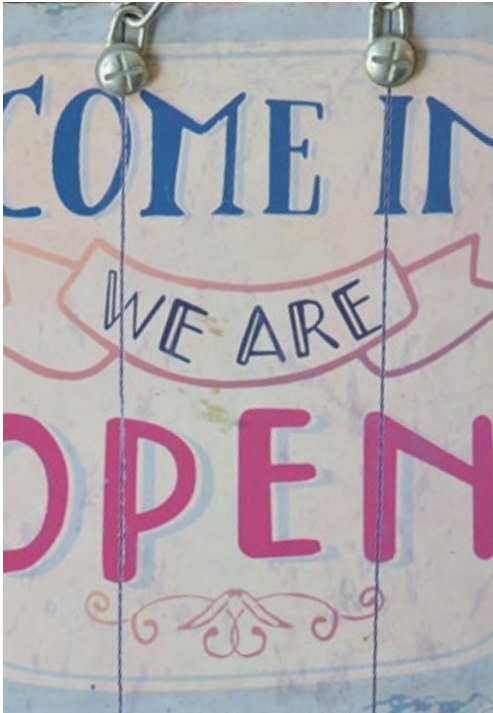 COME IN
WE ARE
OPEN